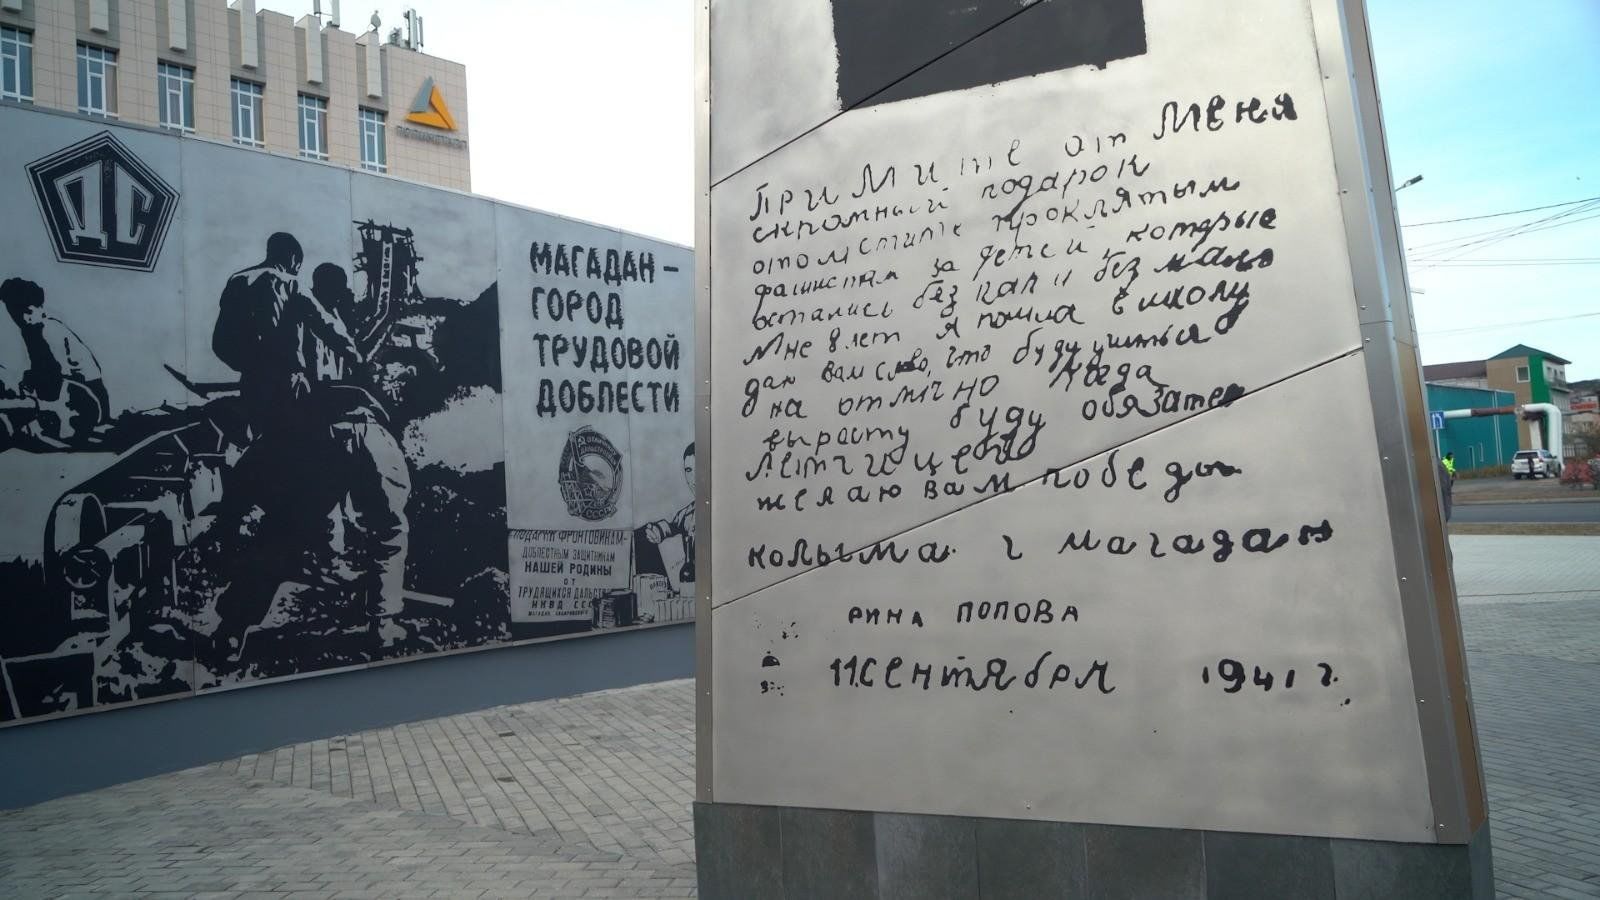 ДС
ПОЛИМЕТАЛЛ
МАГАДАН –
ГОРОД
ТРУДОВОЙ
ДОБЛЕСТИ
СССР
ПОДАРКИ ФРОНТОВИКАМ-
ДОБЛЕСТНЫМ ЗАЩИТНИКАМ
НАШЕЙ РОДИНЫ
ОТ
ТРУДЯЩИХСЯ ДАЛЬСТ
НКВД СС
Примите от Меня
скромный подарок
отомстите проклятым
фашистам за детей, которые
остались без пап и без мам
Мне 8 лет я пошла в школу
даю вам слово, что буду учиться
на отлично
вырасту буду обязател
Летчицей
желаю вам победы
колыма г магадан
РИНА ПОПОВА
11 сентября 1941 г.